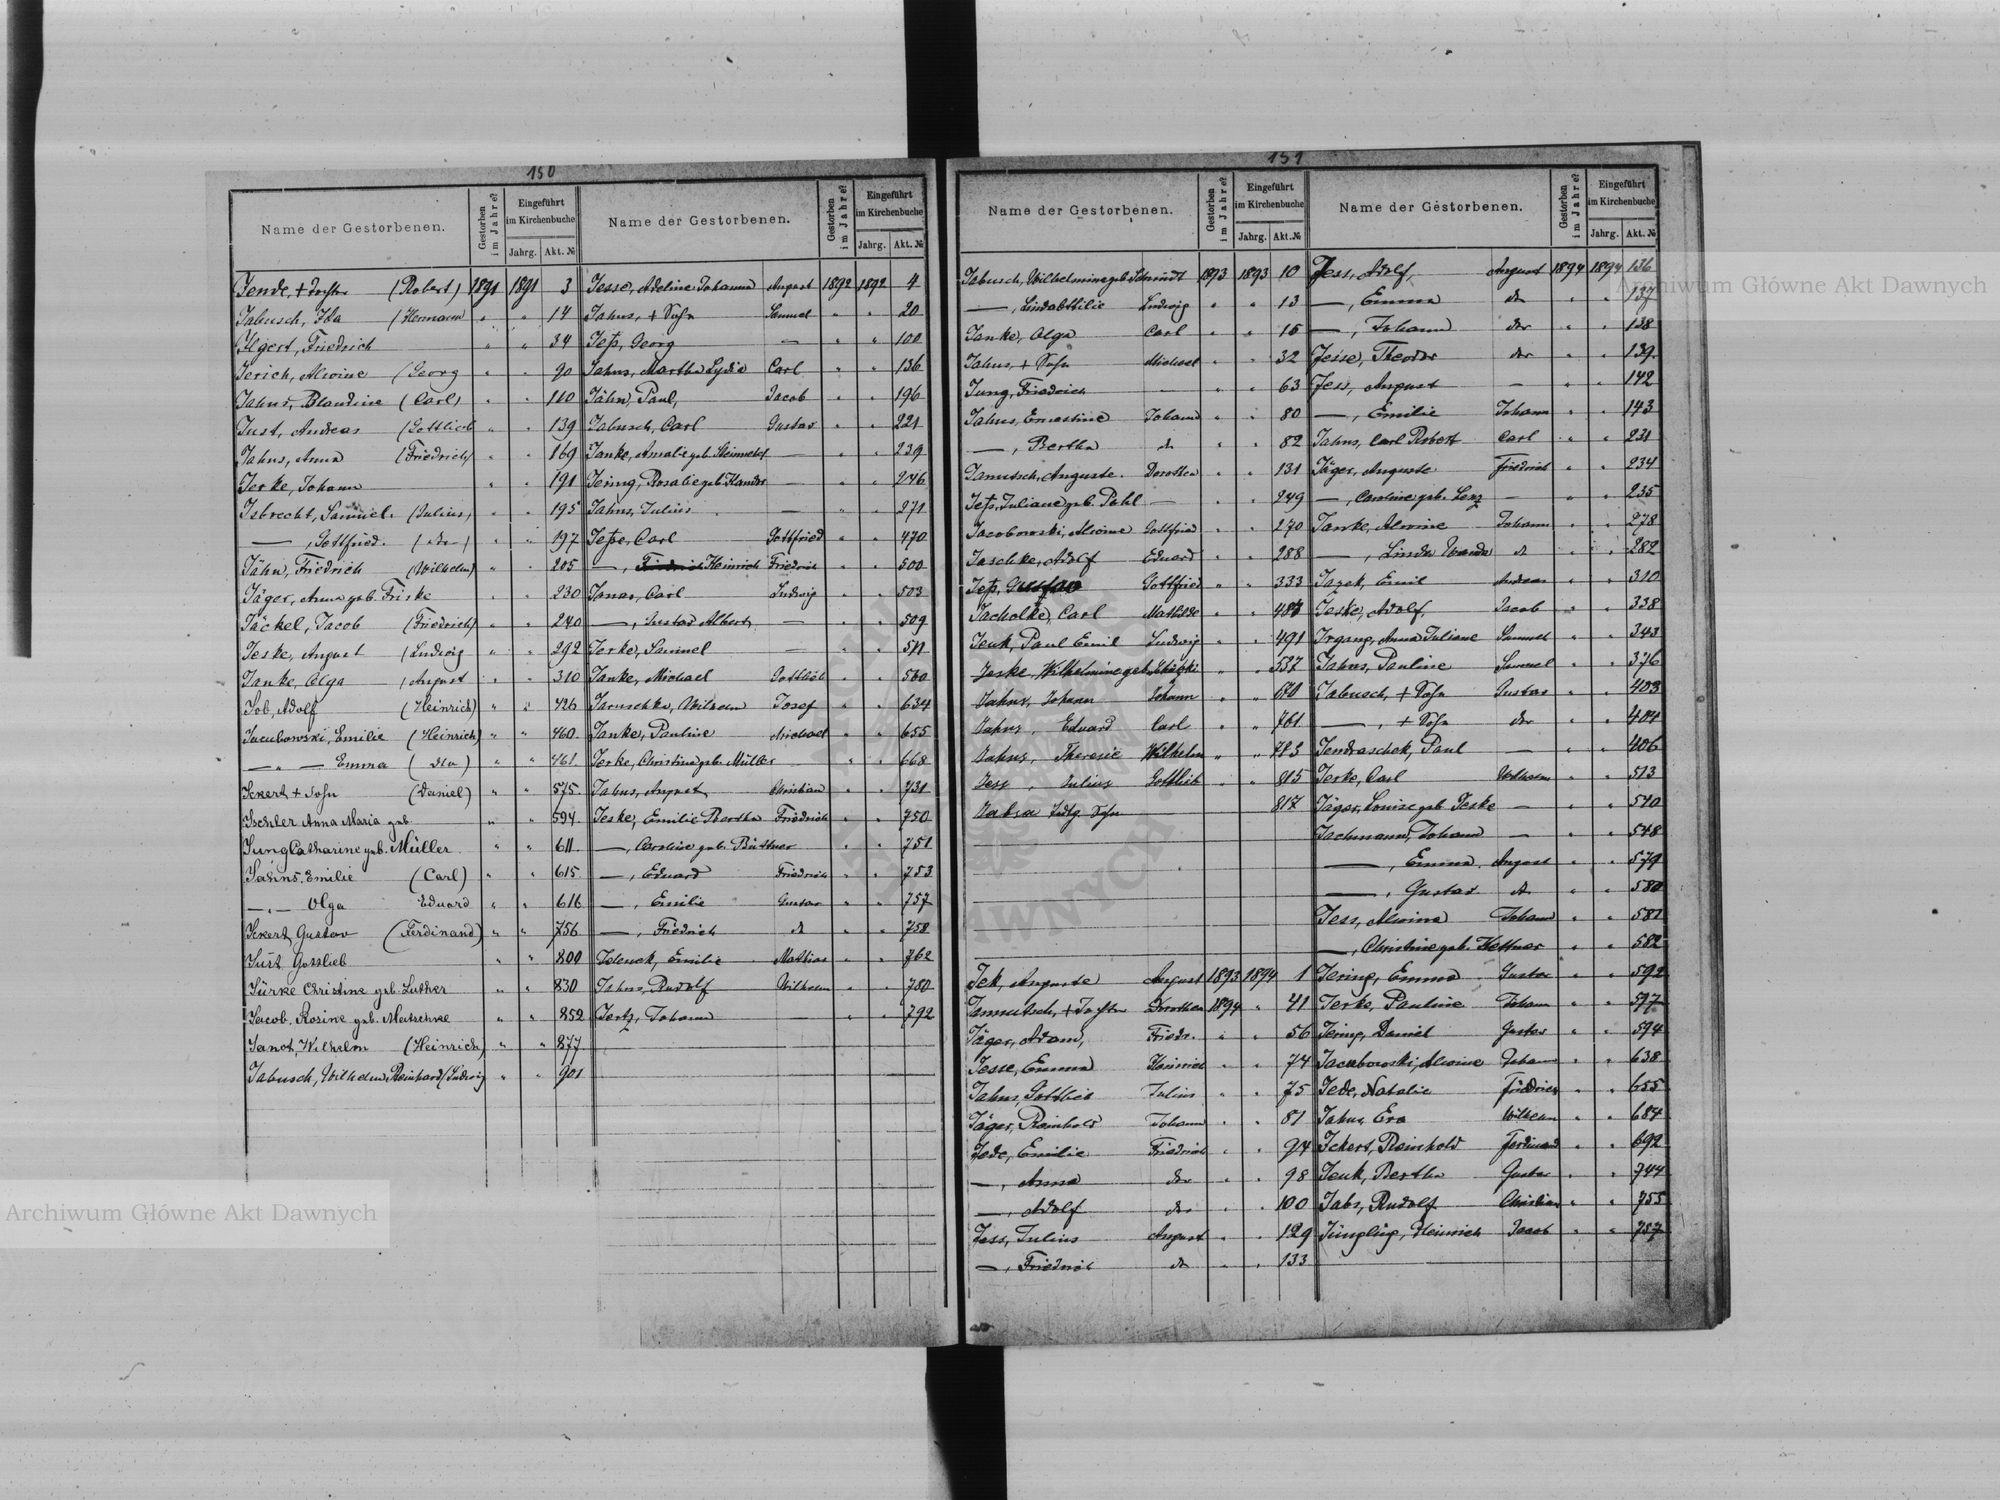 150
Name der Gestorbenen. Gestorben im Jahre? Eingeführt im Kirchenbuche Jahrg. Akt. №
Jende, + Tochter (Robert) 1891 1891 3
Jabusch, Ida (Hermann) " " 14
Ilgert, Friedrich " " 34
Jerich, Alwine (Georg " " 90
Jahns, Blandine (Carl) " " 110
Just, Andreas (Gottlieb " " 139
Jahns, Anna (Friedrich) " " 169
Jerke, Johann " " 191
Isbrecht, Samuel. (Julius) " " 195
—, Gottfried. (do—) " " 197
Jähn, Friedrich (Wilhelm) " " 205
Jäger, Anna geb. Friske " " 230
Jäckel, Jacob (Friedrich) " " 240
Jeske, August (Ludwig " " 292
Janke, Olga (August " " 310
Job, Adolf (Heinrich) " " 426
Jacubowski, Emilie (Heinrich) " " 460.
— " — Emma (do) " " 461.
Ickert + Sohn (Daniel) " " 575.
Ischler Anna Maria geb " " 594.
Jung Catharine geb. Müller " " 611.
Jahns. Emilie (Carl) " " 615.
— " — Olga Eduard " " 616
Ickert, Gustav (Ferdinand) " " 756
Just Gottlieb " " 800
Jürke Christine geb. Luther " " 830
Jacob. Rosine geb. " " 852
Janot, Wilhelm (Heinrich) " " 877
Jabusch, Wilhelm Reinhard (Ludwig " " 901
Name der Gestorbenen. Gestorben im Jahre? Eingeführt im Kirchenbuche Jahrg. Akt. №
Jesse, Adeline Johanna August 1892 1892 4
Jahns, + Sohn Samuel " " 20
Jeß, Georg — " " 100
Jahns, Martha Lydia Carl " " 136
Jähn, Paul, Jacob " " 196
Jabusch, Carl Gustav " " 221
Janke, Amalie geb. — " " 239
Jeinig, Rosalie geb. — " " 246
Jahns, Julius — " " 271
Jeße, Carl Gottfried " " 470
—, Heinrich Friedrich " " 500
Jonas, Carl Ludwig " " 503
—, Gustav Albert — " " 509
Jerke, Samuel — " " 511
Janke, Michael Gottlieb " " 560
Jaruschke, Wilhelm Josef " " 634
Janke, Pauline Michael " " 655
Jerke, Christine geb. Müller — " " 668
Jahns, August Christian " " 731
Jeske, Emilie Bertha Friedrich " " 750
—, Caroline geb. Büttner " " 751
—, Eduard Friedrich " " 753
—, Emilie Gustav " " 757
—, Friedrich do " " 758
Jelenek, Emilie Mathias " " 762
Jahns, Rudolf Wilhelm " " 780
Jertz, Johann — " " 792
151
Name der Gestorbenen. Gestorben im Jahre? Eingeführt im Kirchenbuche Jahrg. Akt. №
Jabusch, Wilhelmine geb. Schmidt 1893 1893 10
—, Linda Ottilie Ludwig " " 13
Janke, Olga Carl " " 16
Jahns, + Sohn Michael " " 32
Jung, Friedrich — " " 63
Jahns, Ernestine Johann " " 80
—, Bertha do " " 82
Jannutsch, Auguste. Dorothea " " 131
Jeß, Juliane geb. Pohl — " " 249
Jacobowski, Alwine Gottfried " " 270
Jaschke, Adolf Eduard " " 288
Jeß, Gustav Gottfried " " 333
Jacholke, Carl Mathilde " " 483
Jeuk, Paul Emil Ludwig " " 491
Jeske, Wilhelmine geb. " " 537
Jahns, Johann Johann " " 670
Jahns, Eduard Carl " " 761
Jahns, Theresie Wilhelm " " 783
Jess, Julius Gottlieb " " 815
817
Jek, Auguste August 1893 1894 1
Jannutsch, + Tochter Dorothea 1894 " 41
Jäger, Adam, Friedr. " " 56
Jesse, Emma Heinrich " " 74
Jahns, Gottlieb Julius " " 75
Jäger, Reinhold Johann " " 81
Jede, Emilie Friedrich " " 94
—, Anna do " " 98
—, Adolf do " " 100
Jess, Julius August " " 129
—, Friedrich do " " 133
Name der Gestorbenen. Gestorben im Jahre? Eingeführt im Kirchenbuche Jahrg. Akt. №
Jess, Adolf August 1894 1894 136
—, Emma do " " 137
—, Johann do " " 138
Jesse, Theodor do " " 139.
Jess, August — " " 142
—, Emilie Johann " " 143
Jahns, Carl Robert Carl " " 231
Jäger, Auguste Friedrich " " 234
—, Caroline geb. Lenz — " " 235
Janke, Alwine Johann " " 278
—, Linda Wanda do " " 282
Jazek, Emil Andreas " " 310
Jeske, Adolf, Jacob " " 338
Irgang, Anna Juliane Samuel " " 343
Jahns, Pauline Samuel " " 376
Jabusch, + Sohn Gustav " " 403
—, + Sohn do " " 404
Jendraschek, Paul — " " 406
Jerke, Carl Wilhelm " " 513
Jäger, Louise geb. Jeske — " " 540
Jachmann, Johann — " " 548
—, Emma August " " 579
—, Gustav do " " 580
Jess, Alwina Johann " " 581
—, Christine geb. Hettner " " 582
Jering, Emma Gustav " " 592
Jerke, Pauline Johann " " 597
Jering, Daniel Gustav " " 594
Jacubowski, Alwine Johann " " 638
Jede, Natalie Friedrich " " 655
Jahns, Eva Wilhelm " " 684
Ickert, Reinhold Ferdinand " " 692
Jeuk, Bertha Gustav " " 744
Jabs, Rudolf Christian " " 755
Jüngling, Heinrich Jacob " " 757
Archiwum Główne Akt Dawnych
Archiwum Główne Akt Dawnych